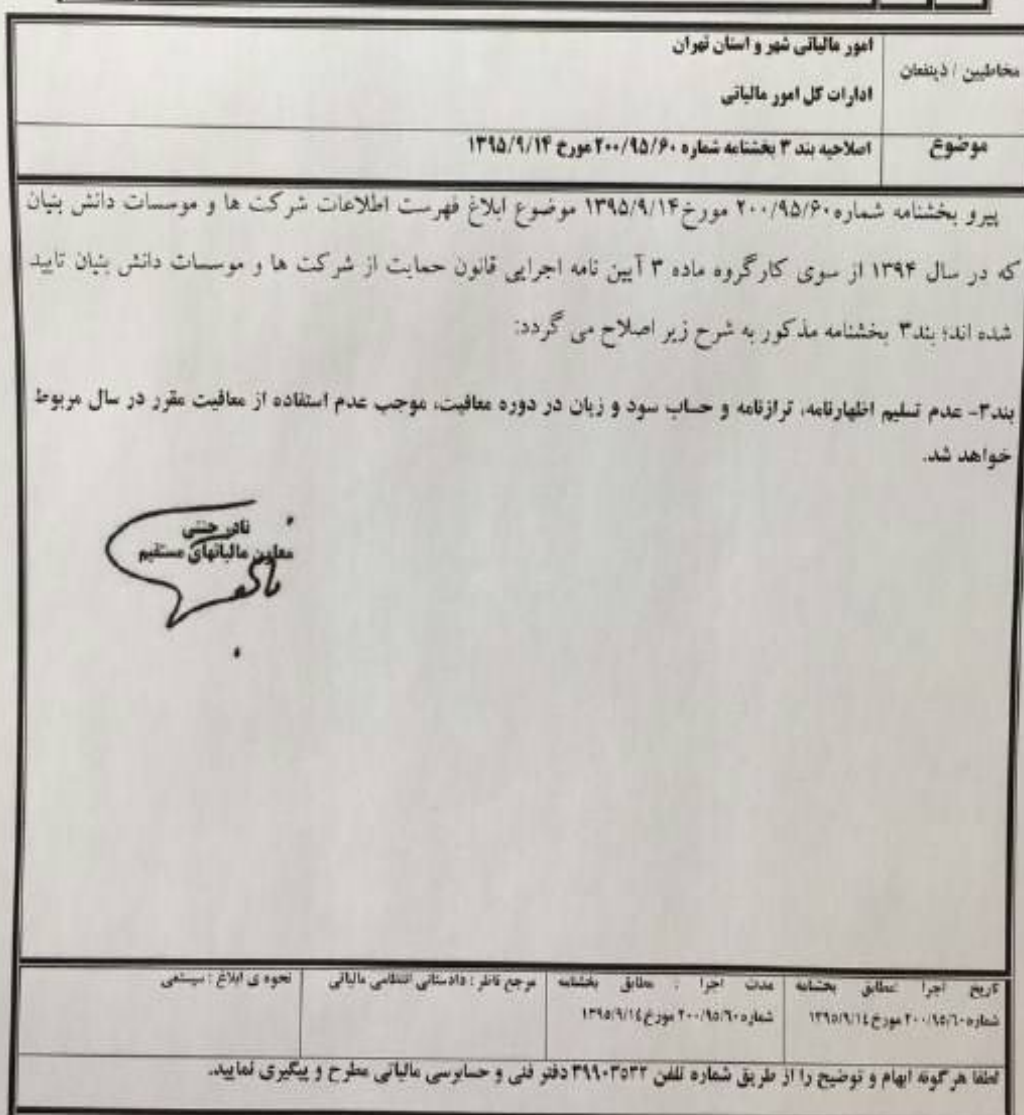 مخاطبین / ذینفعان
امور مالیاتی شهر و استان تهران
ادارات کل امور مالیاتی
موضوع
اصلاحیه بند ۳ بخشنامه شماره ۲۰۰/۹۵/۶۰ مورخ ۱۳۹۵/۹/۱۴
پیرو بخشنامه شماره ۲۰۰/۹۵/۶۰ مورخ ۱۳۹۵/۹/۱۴ موضوع ابلاغ فهرست اطلاعات شرکت ها و موسسات دانش بنیان
که در سال ۱۳۹۴ از سوی کارگروه ماده ۳ آیین نامه اجرایی قانون حمایت از شرکت ها و موسسات دانش بنیان تایید
شده اند؛ بند۳ بخشنامه مذکور به شرح زیر اصلاح می گردد:
بند۳- عدم تسلیم اظهارنامه، ترازنامه و حساب سود و زیان در دوره معافیت، موجب عدم استفاده از معافیت مقرر در سال مربوط
خواهد شد.
نادر جنتی
معاون مالیاتهای مستقیم
تاریخ اجرا :مطابق بخشنامه
شماره ۲۰۰/۹۵/۶۰ مورخ ۱۳۹۵/۹/۱۴
مدت اجرا : مطابق بخشنامه
شماره ۲۰۰/۹۵/۶۰ مورخ ۱۳۹۵/۹/۱۴
مرجع ناظر : دادستانی انتظامی مالیاتی
نحوه ی ابلاغ : سیستمی
لطفا هر گونه ابهام و توضیح را از طریق شماره تلفن ۳۹۹۰۳۵۳۲ دفتر فنی و حسابرسی مالیاتی مطرح و پیگیری نمایید.